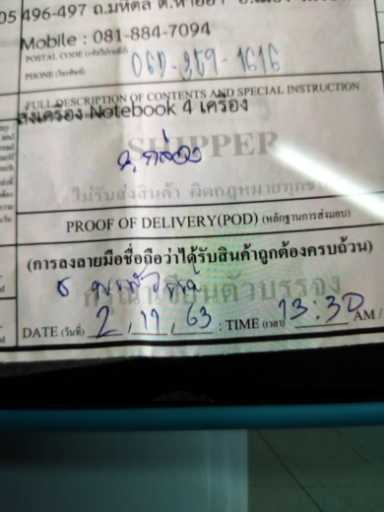 05 496-497 ถ.มหิดล ต.หายยา อ.เมือง
Mobile : 081-884-7094
POSTAL CODE (รหัสไปรษณีย์)
PHONE (โทรศัพท์) 069-359-1616
FULL DESCRIPTION OF CONTENTS AND SPECIAL INSTRUCTION
ส่งเครื่อง Notebook 4 เครื่อง
SHIPPER
ไม่รับส่งสินค้า ผิดกฎหมายทุก
PROOF OF DELIVERY(POD) (หลักฐานการส่งมอบ)
(การลงลายมือชื่อถือว่าได้รับสินค้าถูกต้องครบถ้วน)
กรุณาเขียนตัวบรรจง
DATE (วันที่) 2, 11, 63 : TIME (เวลา) 13:30 AM /